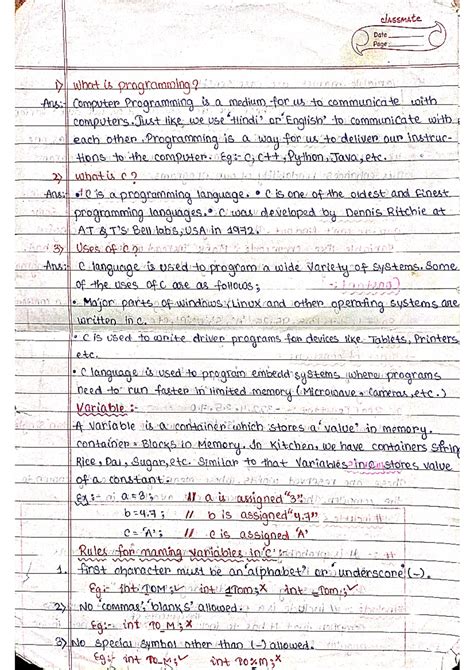 classmate
Date
Page
1) What is programming?
Ans:- Computer Programming is a medium for us to communicate with
computers. Just like we use 'Hindi' or 'English' to communicate with
each other. Programming is a way for us to deliver our instruc-
tions to the computer. Eg:- C, C++, Python, Java, etc.
2) What is C?
Ans:- • C is a programming language. • C is one of the oldest and finest
programming languages. • C was developed by Dennis Ritchie at
AT & T'S Bell labs, USA in 1972.
3) Uses of C?
Ans:- C language is used to program a wide variety of systems. Some
of the uses of C are as follows;
• Major parts of windows, Linux and other operating systems are
written in C.
• C is used to write driver programs for devices like Tablets, Printers
etc.
• C language is used to program embedd systems where programs
need to run faster in limited memory (Microwave, Cameras, etc.)
Variable :-
A variable is a container which stores a 'value' in memory.
container = Blocks in Memory. In Kitchen, we have containers
Rice, Dal, Sugar, etc. Similar to that Variables in C stores value
of a constant.
Eg:- a = 3; // a is assigned "3"
b = 4.7; // b is assigned "4.7"
c = 'A'; // c is assigned 'A'
Rules for naming variables in 'C' :-
1. first character must be an 'alphabet' or 'underscore' (_).
2) No commas, 'blanks' allowed.
3) No special symbol other than (_) allowed.